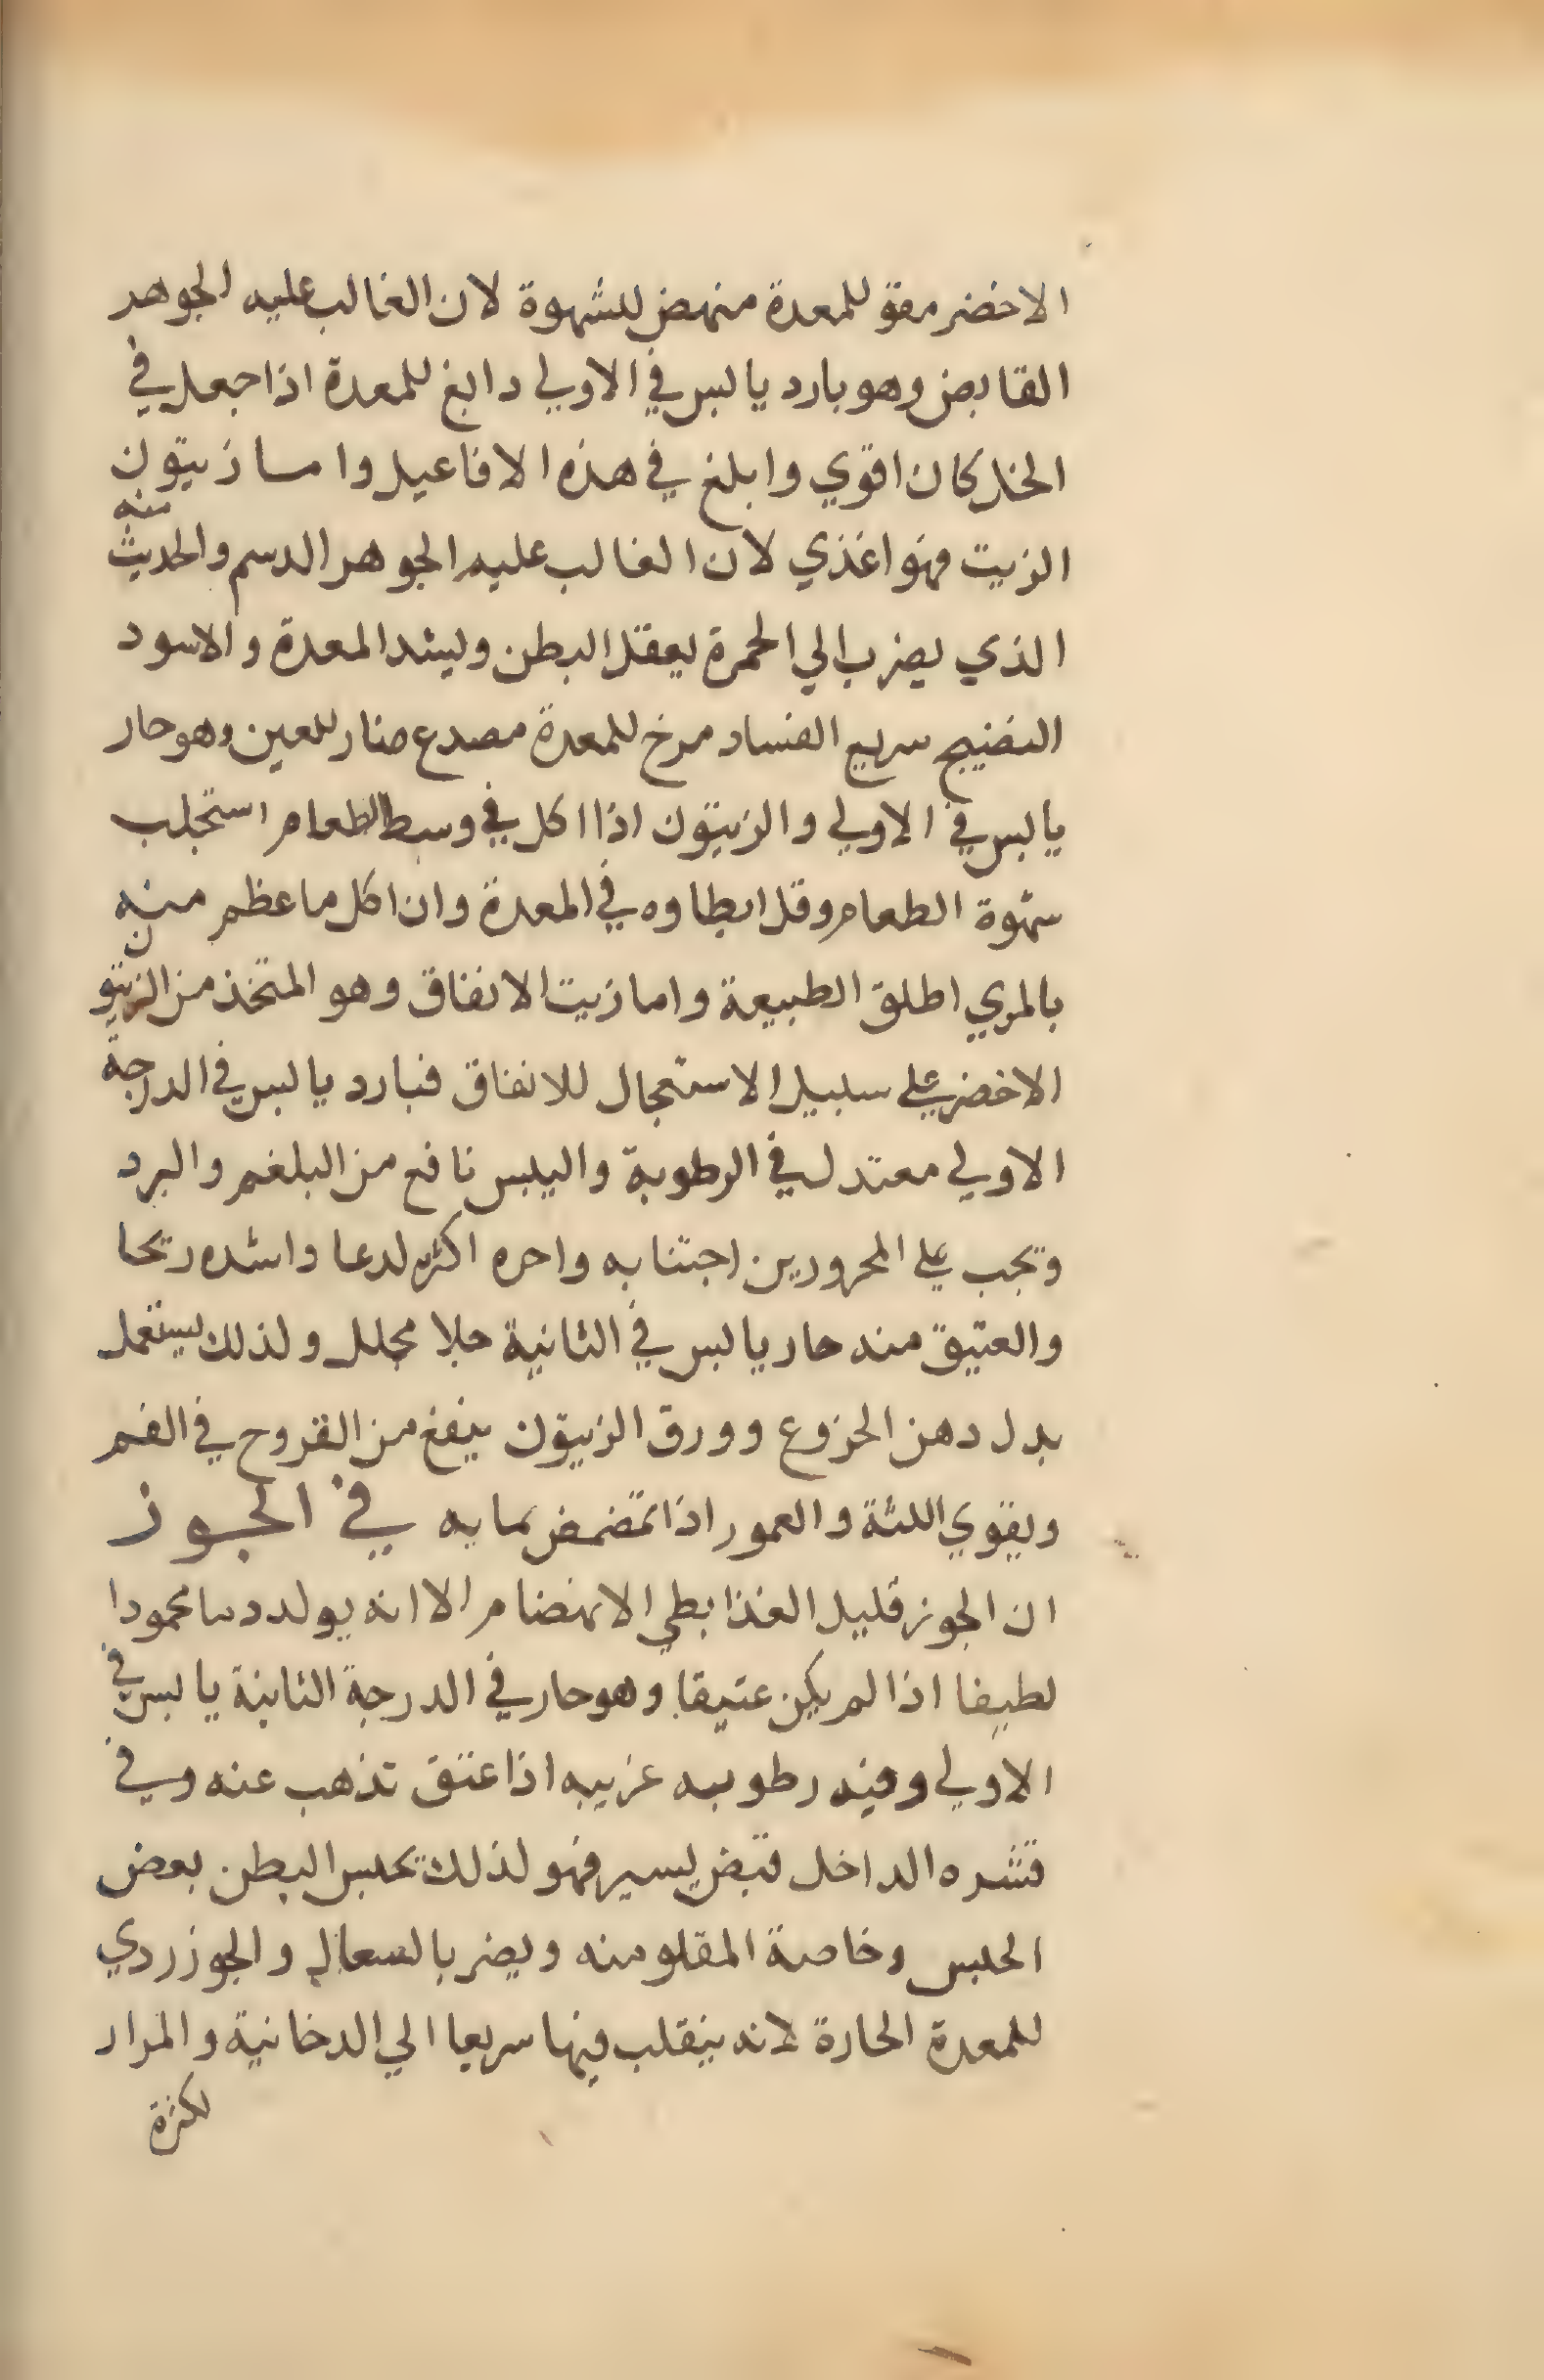 الاخضر مقو للمعدة منهض للشهوة لان الغالب عليه الجوهر
القابض وهو بارد يابس في الاولي دابغ للمعدة اذا جعل في
الخل كان اقوي وابلغ في هذه الافاعيل واما زيتون
الزيت فهو اغذي لان الغالب عليه الجوهر الدسم والحديث منه
الذي يضرب الي الحمرة يعقل البطن ويشد المعدة والاسود
النضيج سريع الفساد مرخ للمعدة مصدع ضار للعين وهو حار
يابس في الاولي والزيتون اذا اكل في وسط الطعام استجلب
شهوة الطعام وقل ابطاوه في المعدة وان اكل ما عظم منه
بالمري اطلق الطبيعة واما زيت الانفاق وهو المتخذ من الزيتون
الاخضر علي سبيل الاستعجال للانفاق فبارد يابس في الدرجة
الاولي معتدل في الرطوبة واليبس نافع من البلغم والبرد
وتجب علي المحرورين اجتنابه واحره اكثره لدعا واشده ريحا
والعتيق منه حار يابس في الثانية جلا محلل ولذلك يستعمل
بدل دهن الخروع وورق الزيتون ينفع من القروح في الفم
ويقوي اللثة والعمور اذا تمضمض بمايه في الجوز
ان الجوز قليل الغذا بطي الانهضام الا انه يولد دما محمودا
لطيفا اذا لم يكن عتيقا وهو حار في الدرجة الثانية يابس في
الاولي وفيه رطوبه غريبه اذا عتق تذهب عنه وفي
قشره الداخل قبض يسير فهو لذلك تحبس البطن بعض
الحبس وخاصة المقلو منه ويضر بالسعال والجوز ردي
للمعدة الحارة لانه ينقلب فيها سريعا الي الدخانية والمرار
لكثرة